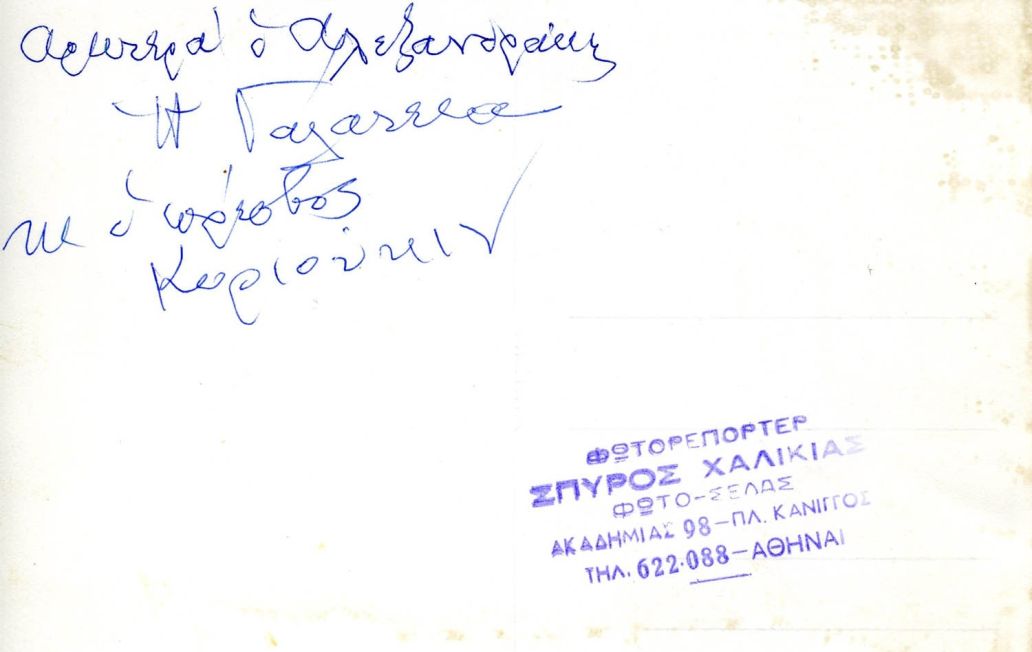 Αριστερά ὁ Αλεξανδράκης
Ἡ Γαλάτεια
κι ὁ πρέσβος
Κοριούκιν
ΦΩΤΟΡΕΠΟΡΤΕΡ
ΣΠΥΡΟΣ ΧΑΛΙΚΙΑΣ
ΦΩΤΟ-ΣΕΛΑΣ
ΑΚΑΔΗΜΙΑΣ 98-ΠΛ. ΚΑΝΙΓΓΟΣ
ΤΗΛ. 622.088-ΑΘΗΝΑΙ